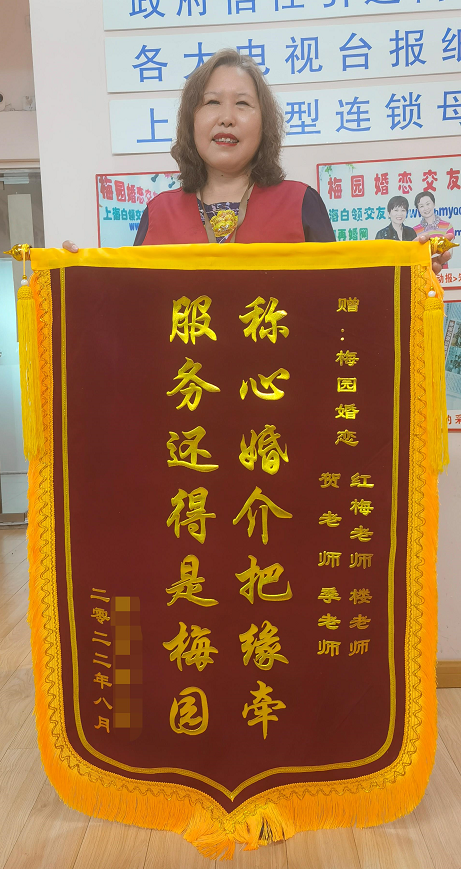 各大电视台报纸
型连锁
梅园婚恋交
上海白领交
梅园婚恋交友
海白领交友
再婚网
赠：梅园婚恋
红梅老师 楼老师
贺老师 季老师
称心婚介把缘牵
服务还得是梅园
二零二二年八月